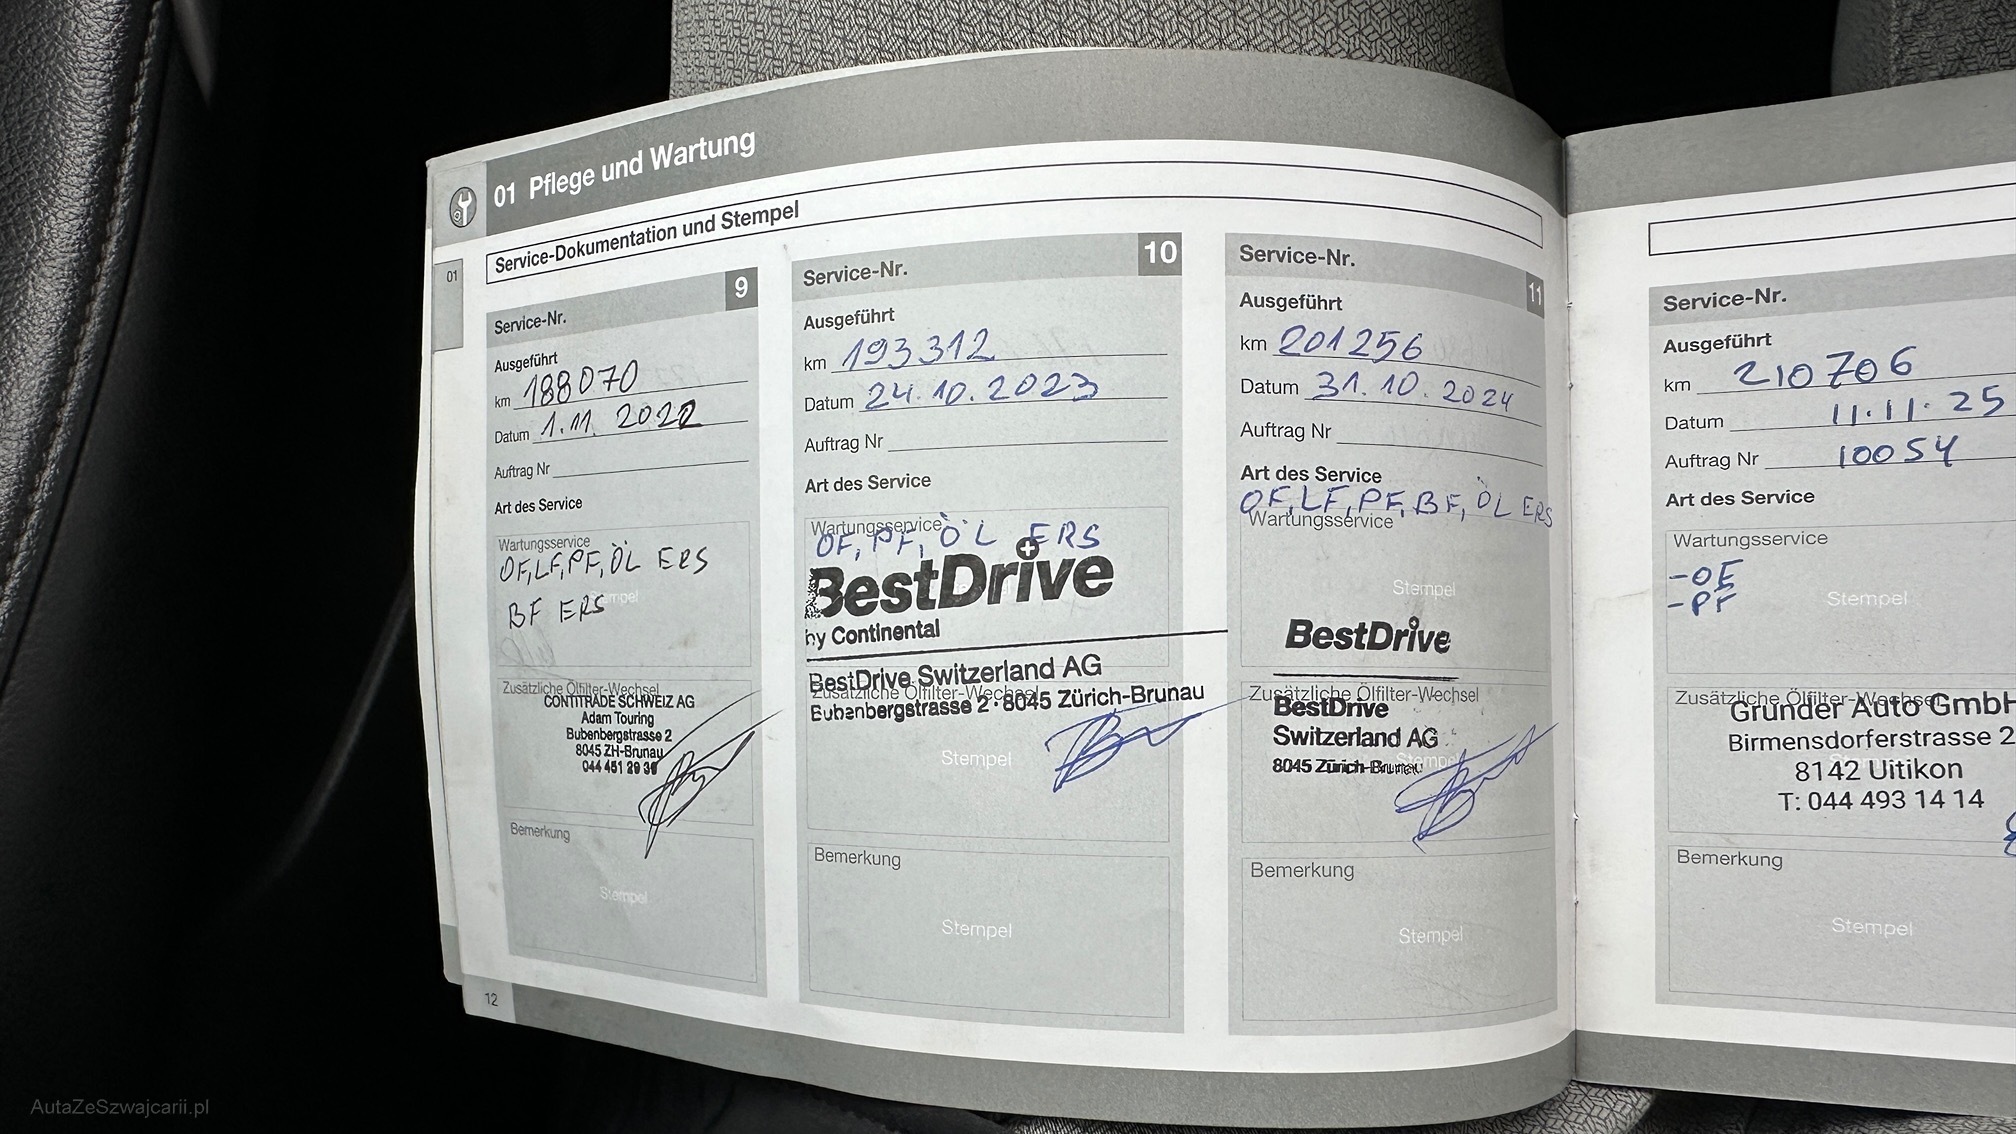 01 Pflege und Wartung
Service-Dokumentation und Stempel
01
Service-Nr. 9
Ausgeführt
km 188070
Datum 1.11. 2022
Auftrag Nr
Art des Service
Wartungsservice
OF, LF, PF, ÖL ERS
BF ERS
Zusätzliche Ölfilter-Wechsel
CONTITRADE SCHWEIZ AG
Adam Touring
Bubenbergstrasse 2
8045 ZH-Brunau
Bemerkung
Stempel
12
Service-Nr. 10
Ausgeführt
km 193312
Datum 24.10.2023
Auftrag Nr
Art des Service
Wartungsservice
OF, PF, ÖL ERS
BestDrive
by Continental
BestDrive Switzerland AG
Zusätzliche Ölfilter-Wechsel
Bubenbergstrasse 2 · 8045 Zürich-Brunau
Stempel
Bemerkung
Stempel
Service-Nr. 11
Ausgeführt
km 201256
Datum 31.10.2024
Auftrag Nr
Art des Service
OF, LF, PF, BF, ÖL ERS
Wartungsservice
Stempel
BestDrive
Zusätzliche Ölfilter-Wechsel
BestDrive
Switzerland AG
Stempel
8045 Zürich-Brunau
Bemerkung
Stempel
Service-Nr.
Ausgeführt
km 210706
Datum 11.11.25
Auftrag Nr 10054
Art des Service
Wartungsservice
-OF
-PF
Stempel
Zusätzliche Ölfilter-Wechsel
Grunder Auto GmbH
Birmensdorferstrasse 2
8142 Uitikon
T: 044 493 14 14
Bemerkung
Stempel
AutaZeSzwajcarii.pl